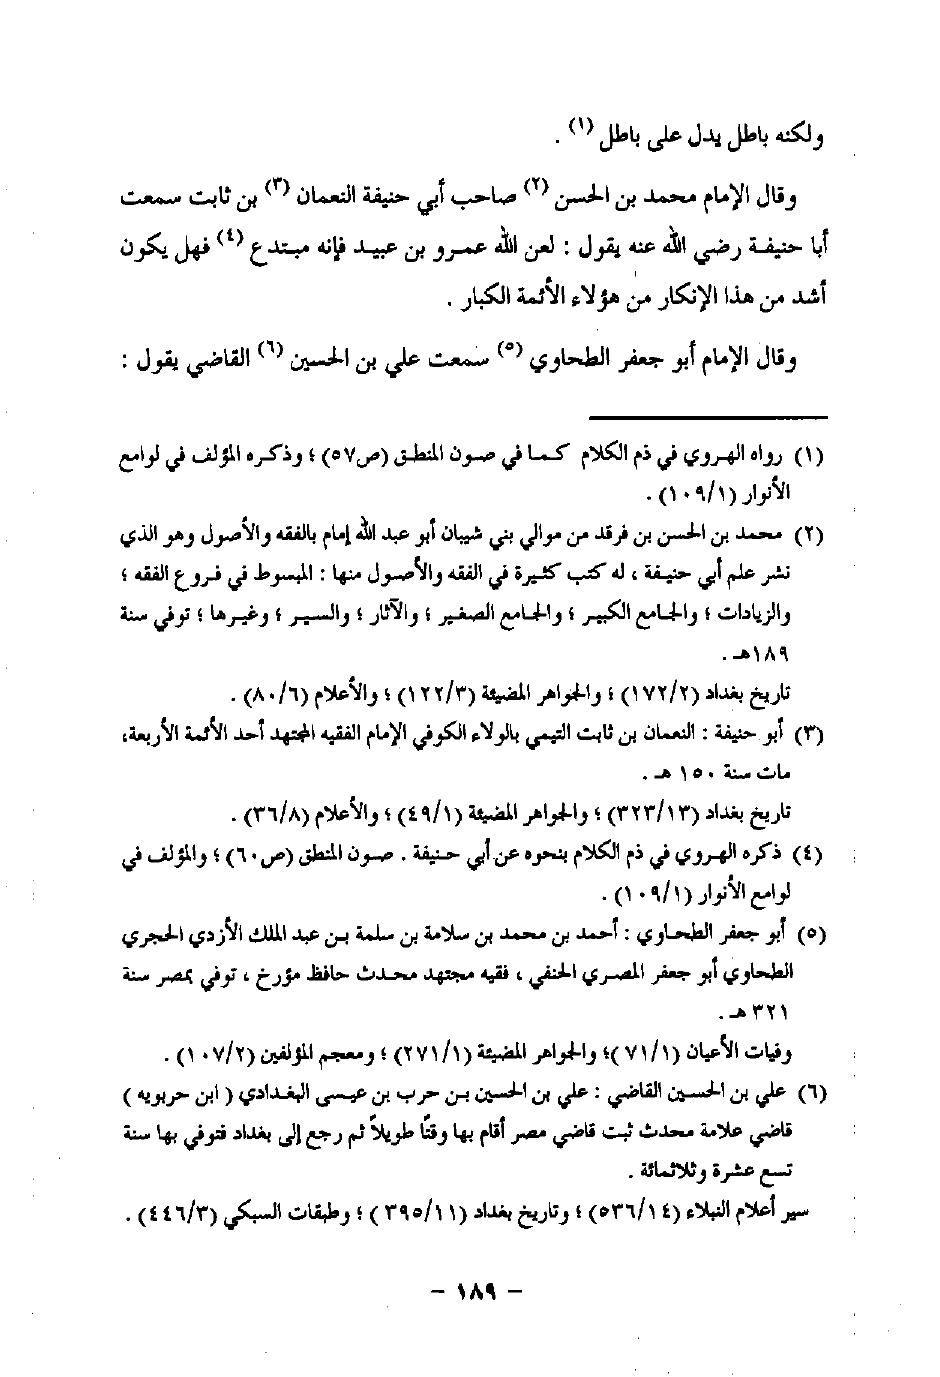 ولكنه باطل يدل على باطل (١) .
وقال الإمام محمد بن الحسن (٢) صاحب أبي حنيفة النعمان (٣) بن ثابت سمعت
أبا حنيفة رضي الله عنه يقول : لعن الله عمرو بن عبيد فإنه مبتدع (٤) فهل يكون
أشد من هذا الإنكار من هؤلاء الأئمة الكبار .
وقال الإمام أبو جعفر الطحاوي (٥) سمعت علي بن الحسين (٦) القاضي يقول :
(١) رواه الهروي في ذم الكلام كما في صون المنطق (ص٥٧) ؛ وذكره المؤلف في لوامع
الأنوار (١٠٩/١) .
(٢) محمد بن الحسن بن فرقد من موالي بني شيبان أبو عبد الله إمام بالفقه والأصول وهو الذي
نشر علم أبي حنيفة ، له كتب كثيرة في الفقه والأصول منها : المبسوط في فروع الفقه ؛
والزيادات ؛ والجامع الكبير ؛ والجامع الصغير ؛ والآثار ؛ والسير ؛ وغيرها ؛ توفي سنة
١٨٩هـ .
تاريخ بغداد (١٧٢/٢) ؛ والجواهر المضيئة (١٢٢/٣) ؛ والأعلام (٨٠/٦) .
(٣) أبو حنيفة : النعمان بن ثابت التيمي بالولاء الكوفي الإمام الفقيه المجتهد أحد الأئمة الأربعة،
مات سنة ١٥٠ هـ .
تاريخ بغداد (٣٢٣/١٣) ؛ والجواهر المضيئة (٤٩/١) ؛ والأعلام (٣٦/٨) .
(٤) ذكره الهروي في ذم الكلام بنحوه عن أبي حنيفة . صون المنطق (ص٦٠) ؛ والمؤلف في
لوامع الأنوار (١٠٩/١) .
(٥) أبو جعفر الطحاوي : أحمد بن محمد بن سلامة بن سلمة بن عبد الملك الأزدي الحجري
الطحاوي أبو جعفر المصري الحنفي ، فقيه مجتهد محدث حافظ مؤرخ ، توفي بمصر سنة
٣٢١ هـ .
وفيات الأعيان (٧١/١ )؛ والجواهر المضيئة (٢٧١/١) ؛ ومعجم المؤلفين (١٠٧/٢) .
(٦) علي بن الحسين القاضي : علي بن الحسين بن حرب بن عيسى البغدادي ( ابن حربويه )
قاضي علامة محدث ثبت قاضي مصر أقام بها وقتًا طويلاً ثم رجع إلى بغداد فتوفي بها سنة
تسع عشرة وثلاثمائة .
سير أعلام النبلاء (٥٣٦/١٤) ؛ وتاريخ بغداد (٣٩٥/١١ ) ؛ وطبقات السبكي (٤٤٦/٣) .
- ١٨٩ -